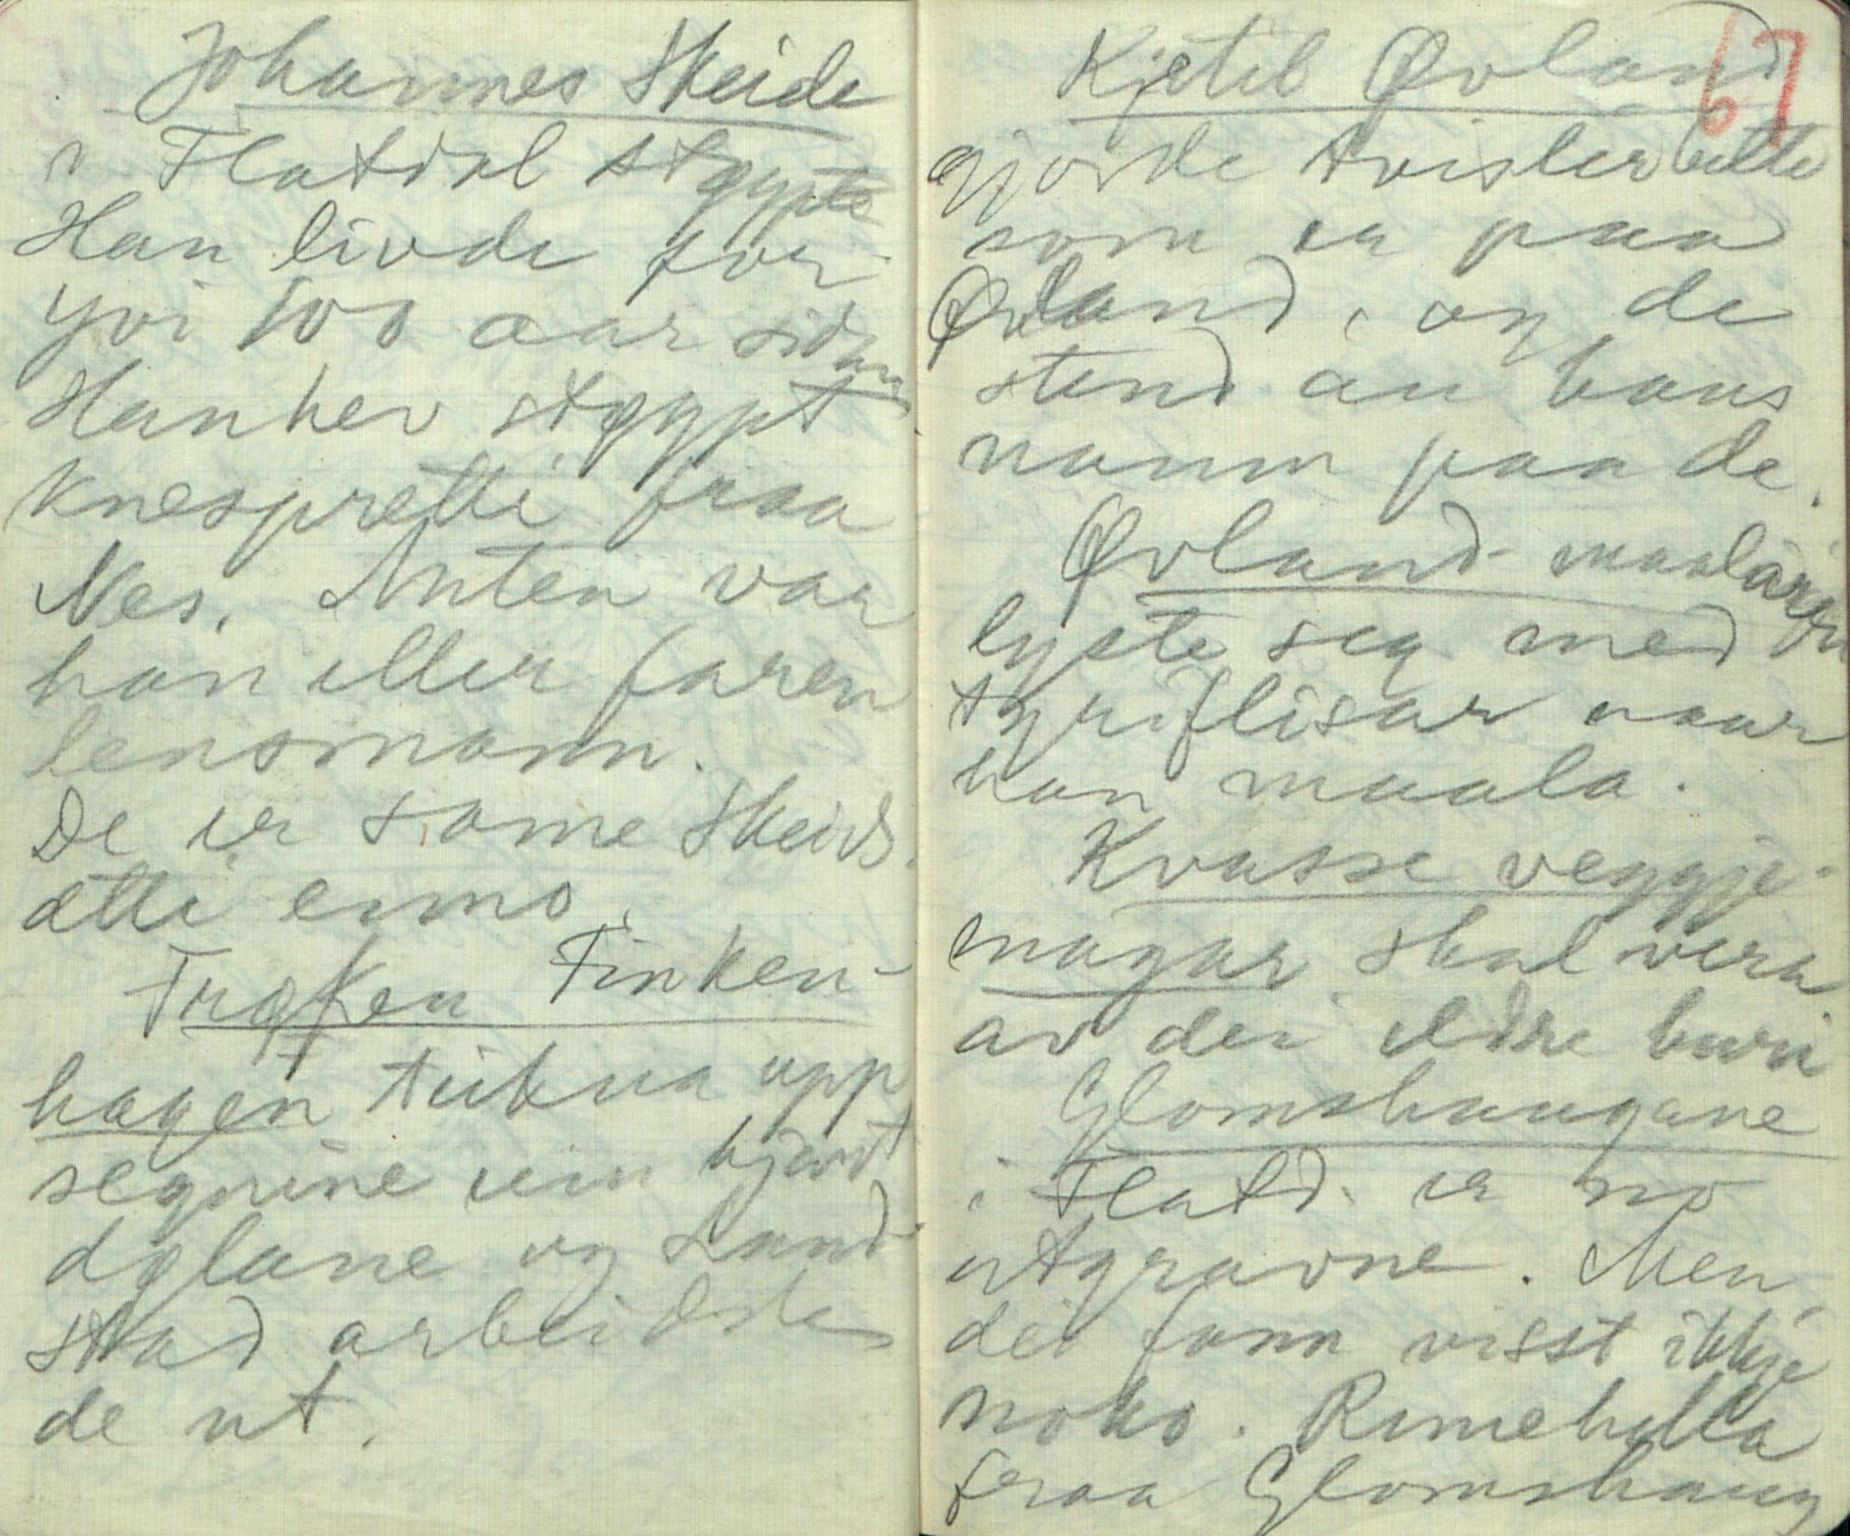 Johannes Skeide
i Flatdal støypte
Han livde for
yvi 100 aar sidan
Han hev støypt
knespretti fraa
Nes. Anten var
han eller faren
lensmann.
De er same Skeids-
ætti enno.
Frøken Finken-
hagen teikna upp
segnine um hjart
dølane og Land
stad arbeidde
de ut.
67
Kjetil Øvland
gjorde tvisler
som er paa
Øvland, og de
stend au hans
namn paa de.
Øvland-maalaren
lyste seg med
tyriflisar naar
han maala.
Kvasse veggje-
magar skal vera
av dei eldre buri
Glomshaugane
i Flatd. er no
utgravne. Men
dei fann visst ikkje
noko. Rimehølla
fraa Glomshaug